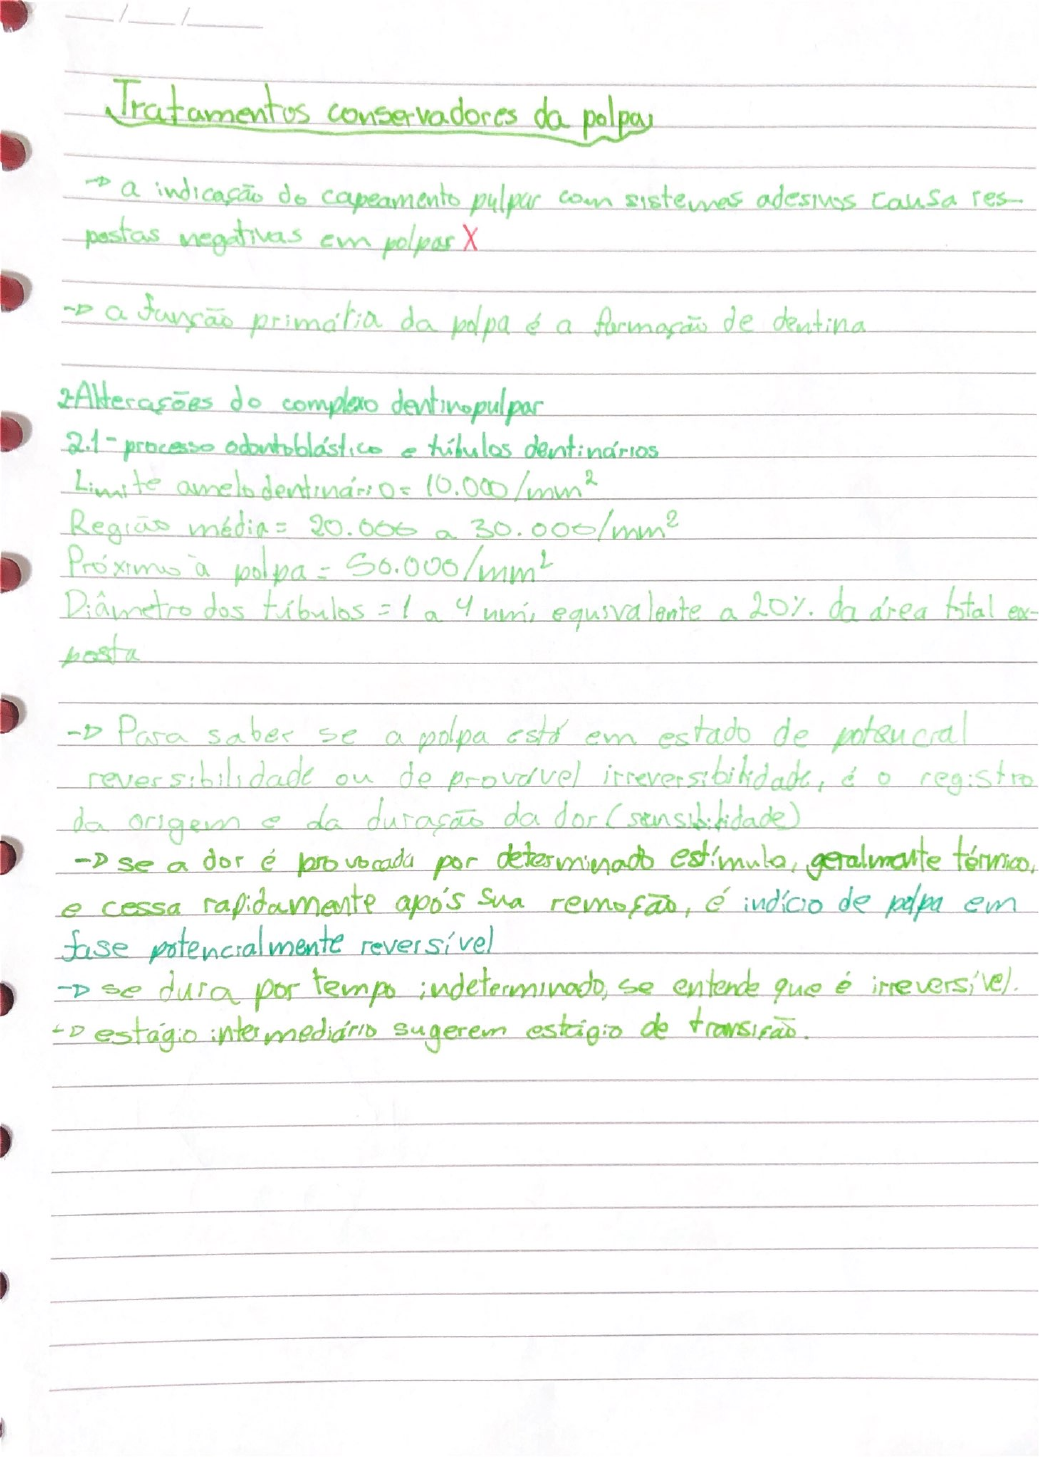 Tratamentos conservadores da polpa
→ a indicação do capeamento pulpar com sistemas adesivos causa res-
postas negativas em polpas X
→ a função primária da polpa é a formação de dentina
2-Alterações do complexo dentinopulpar
2.1- processo odontoblástico e túbulos dentinários
Limite amelodentinário = 10.000/mm²
Região média = 20.000 a 30.000/mm²
Próximo à polpa = 50.000/mm²
Diâmetro dos túbulos = 1 a 4 um, equivalente a 20% da área total ex-
posta
→ Para saber se a polpa está em estado de potencial
reversibilidade ou de provável irreversibilidade, é o registro
da origem e da duração da dor (sensibilidade)
→ se a dor é provocada por determinado estímulo, geralmente térmico,
e cessa rapidamente após sua remoção, é indício de polpa em
fase potencialmente reversível
→ se dura por tempo indeterminado, se entende que é irreversível.
→ estágio intermediário sugerem estágio de transição.